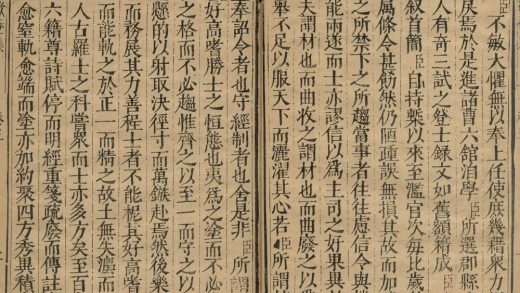 臣不敏大懼無以奉上任使庶幾藉衆力
焉於是進諸曹六館涓學臣所選郡縣
人有奇三試之登士録文如舊額稿成臣
敘首簡臣自持槧以來至濫官次毎比歲
厲條令甚飭然仍陋踵誤無損其故而加
之所禁下之所趨當事者往往慮信令與
能兩遂而士亦謬信以爲主司之好果異
夫謂材也而曲收之謂材也而曲廢之以
舉不足以服天下而灑濯其心若臣所謂
奉詔令者也守經制者也舍是非臣所謂
好高者勝士之恒態也夷爲之塗而不必
之格而不必趨惟齊之以至一而守之以
懸的以射取決徑寸而萬鏃赴焉然後樂
而務展其力善程士者不能柅其好高者
而能軌之於正一而精之故士無失灋而
人古羅士之科嘗衆而士亦多方矣至百
六籍尊詩賦停而明經重箋疏廢而傳註
愈窒軌愈端而塗亦加約聚四方秀異積